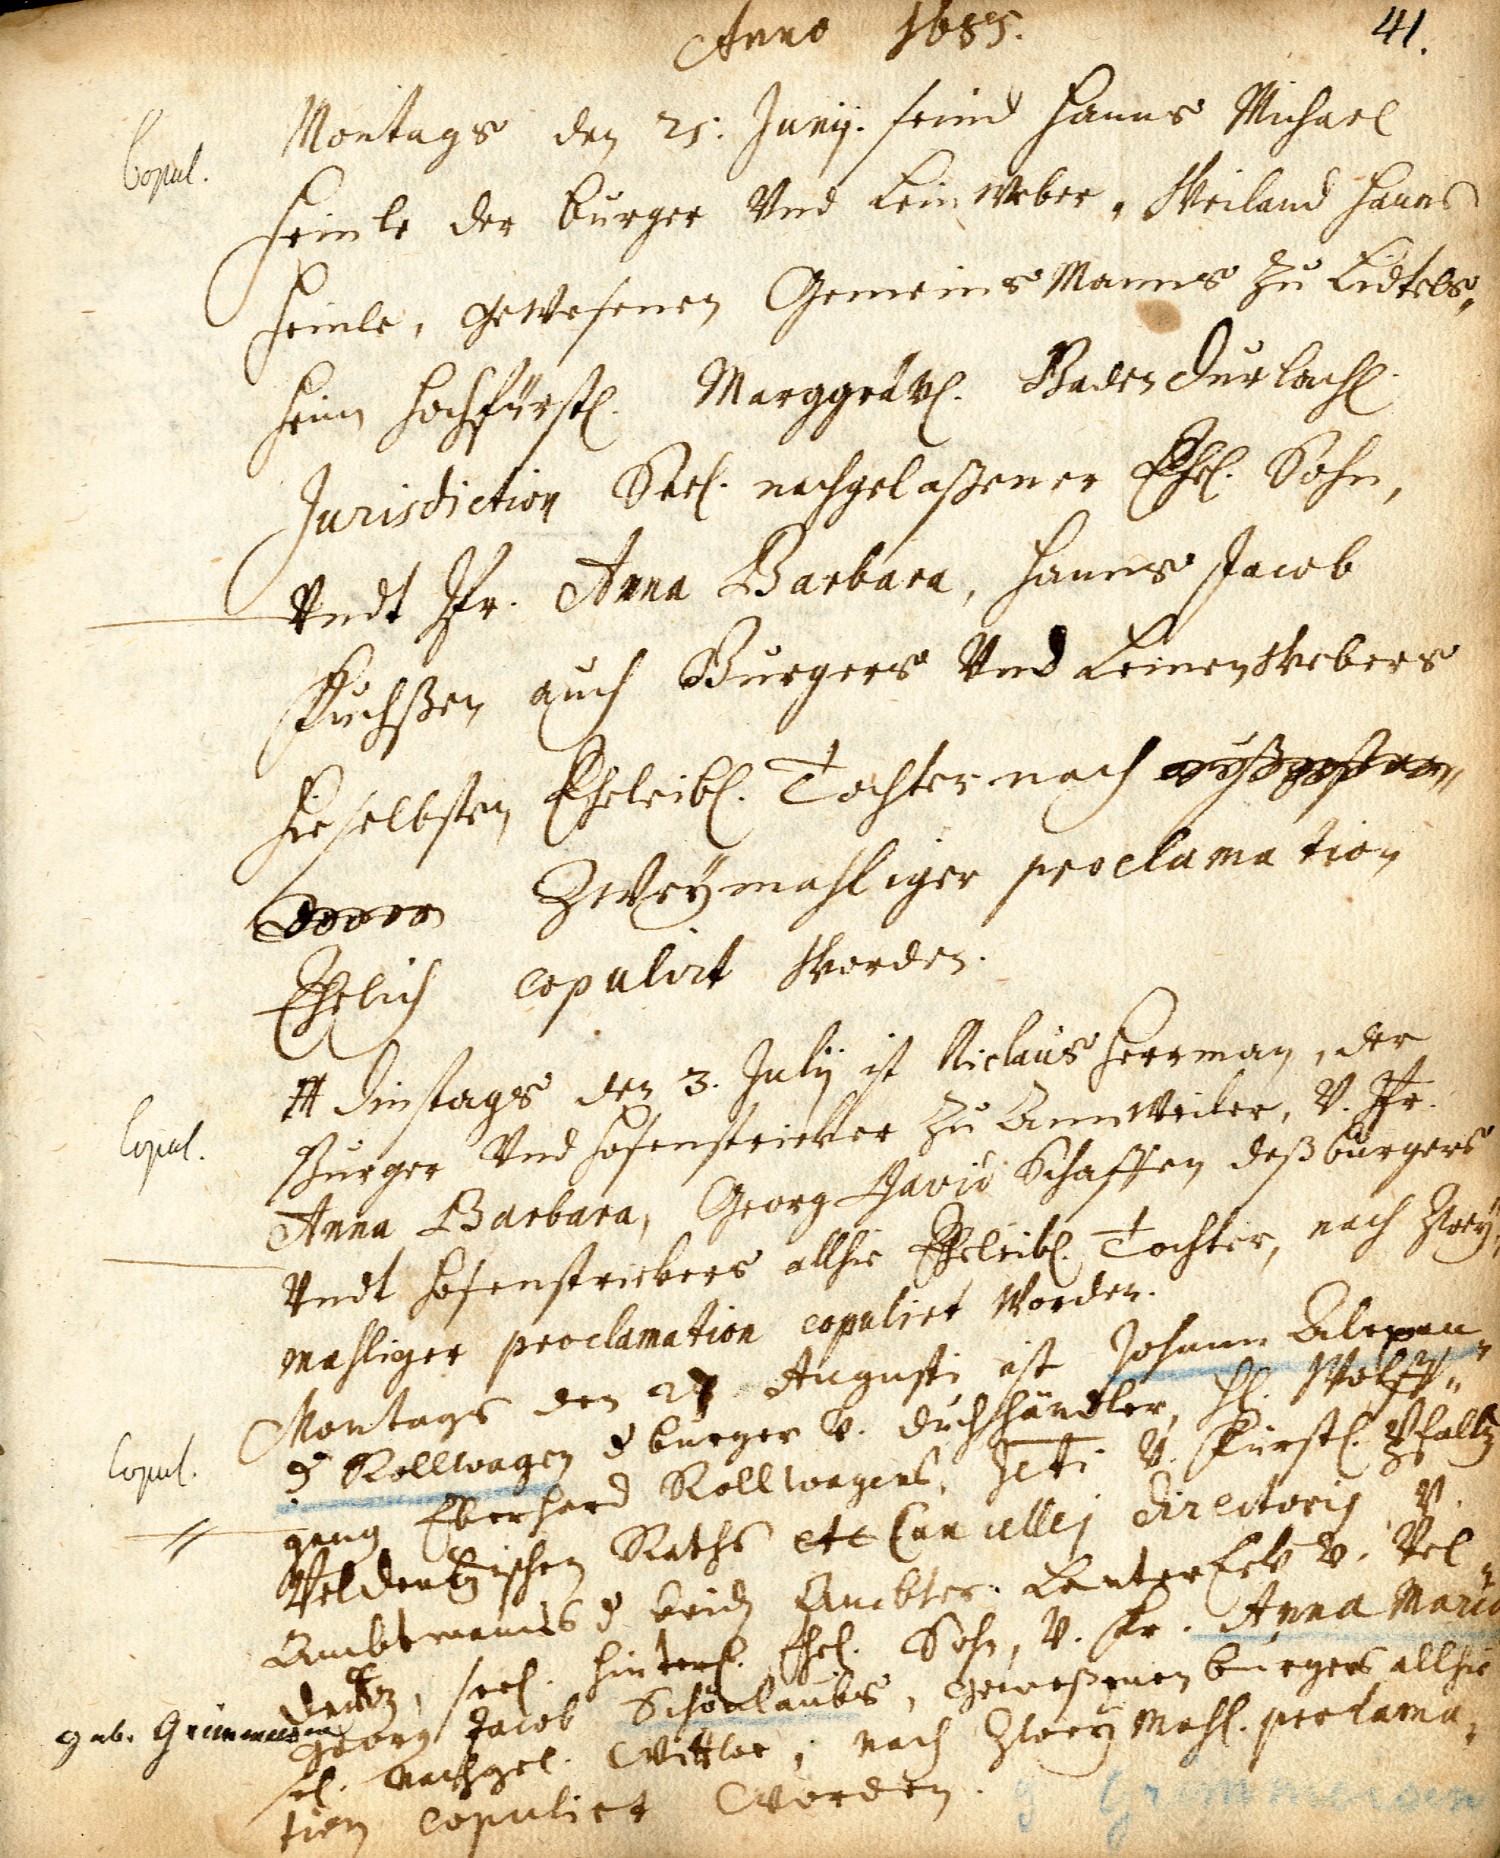 Anno 1685.
41.
Copul.
Montags den 25. Junij. seind Hanns Michael
Heinle der burger Vnd Leinweber, Weiland Hanns
Heinle, gewesenen Gemeins Manns zu Lidels„
heim Hochfürstl. Marggrävl. Baden Durlachl.
Jurisdiction Seel. nachgelaßener Ehel. Sohn,
Vndt Jfr. Anna Barbara, Hanns Jacob
Fuchßen auch Burgers Vnd Leinen Webers
hieselbsten Eheleibl. Tochter nach
Zweymahliger proclamation
Ehelich copulirt Worden.
Copul.
Dinstags den 3. Julij ist Niclaus Herrman, der
Burger Vnd Hosenstricker zu Annweiler, V. Jfr.
Anna Barbara, Georg David Schaffen deß burgers
Vndt Hosenstrickers allhie Eheleibl. Tochter, nach Zwey„
mahliger proclamation copulirt Worden.
Copul.
Montags den 27 Augusti ist Johann Alexan„
der Rollwagen der burger v. Duchhändler, Hl. Wolff„
gang Eberhard Rollwagens, Jcti V. Fürstl. Pfaltz
Veldentzischen Raths etc Cancellej Directoris V.
Ambtmanns der beid Aembter Lautereck V. Vel„
dentz, seel. hinterl. Ehel. Sohn, V. Fr. Anna Maria
Georg Jacob Schönlaubs, geweßenen burgers allhie
sel. nachgel. Wittwe, nach Zwey Mahl. proclama„
tion copulirt Worden.
geb. Grimmeisen
g Grimmeisen